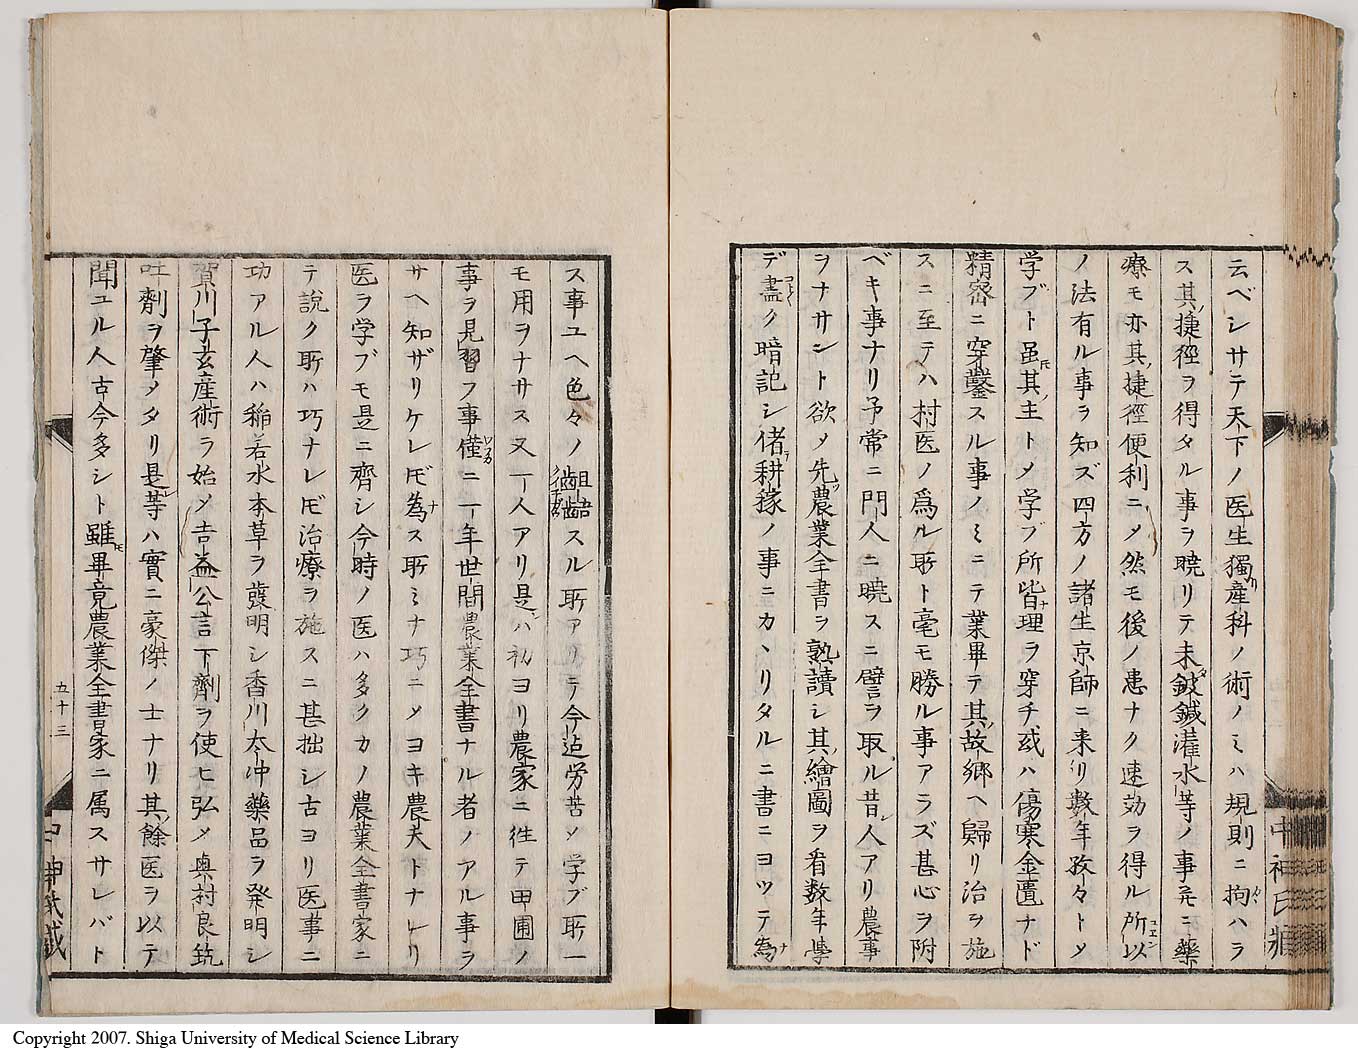 云ベシサテ天下ノ医生獨産科ノ術ノミハ規則ニ拘ハラ
ス其捷徑ヲ得タル事ヲ曉リテ未鈹鍼灌水等ノ事幷ニ藥
療モ亦其捷徑便利ニメ然モ後ノ患ナク速効ヲ得ル所以
ノ法有ル事ヲ知ズ四方ノ諸生京師ニ来リ数年孜々トメ
学ブト虽其主トメ学ブ所皆理ヲ穿チ或ハ傷寒金匱ナド
精密ニ穿鑿スル事ノミニテ業畢テ其故郷ヘ歸リ治ヲ施
スニ至テハ村医ノ爲ル所ト毫モ勝ル事アラズ甚心ヲ附
ベキ事ナリ予常ニ門人ニ曉スニ譬ヲ取ル昔人アリ農事
ヲナサント欲メ先農業全書ヲ熟讀シ其繪圖ヲ看数年學
デ盡ク暗記シ偖耕稼ノ事ニカヽリタルニ書ニヨツテ為
ス事ユヘ色々ノ齟齬スル所アリテ今迠労苦メ学ブ所一
モ用ヲナサス又一人アリ是ハ初ヨリ農家ニ徃テ田圃ノ
事ヲ見習フ事僅ニ一年世間農業全書ナル者ノアル事ヲ
サヘ知ザリケレ𪜈為ス所ミナ巧ニメヨキ農夫トナレリ
医ヲ学ブモ是ニ齊シ今時ノ医ハ多クカノ農業全書家ニ
テ説ク所ハ巧ナレ𪜈治療ヲ施スニ甚拙シ古ヨリ医事ニ
功アル人ハ稲若水本草ヲ發明シ香川太冲藥品ヲ発明シ
賀川子玄産術ヲ始メ吉益公言下劑ヲ使ヒ弘メ奥村良筑
吐劑ヲ肇メタリ是等ハ實ニ豪傑ノ士ナリ其餘医ヲ以テ
聞ユル人古今多シト雖畢竟農業全書家ニ属スサレバト
五十三
Copyright 2007. Shiga University of Medical Science Library